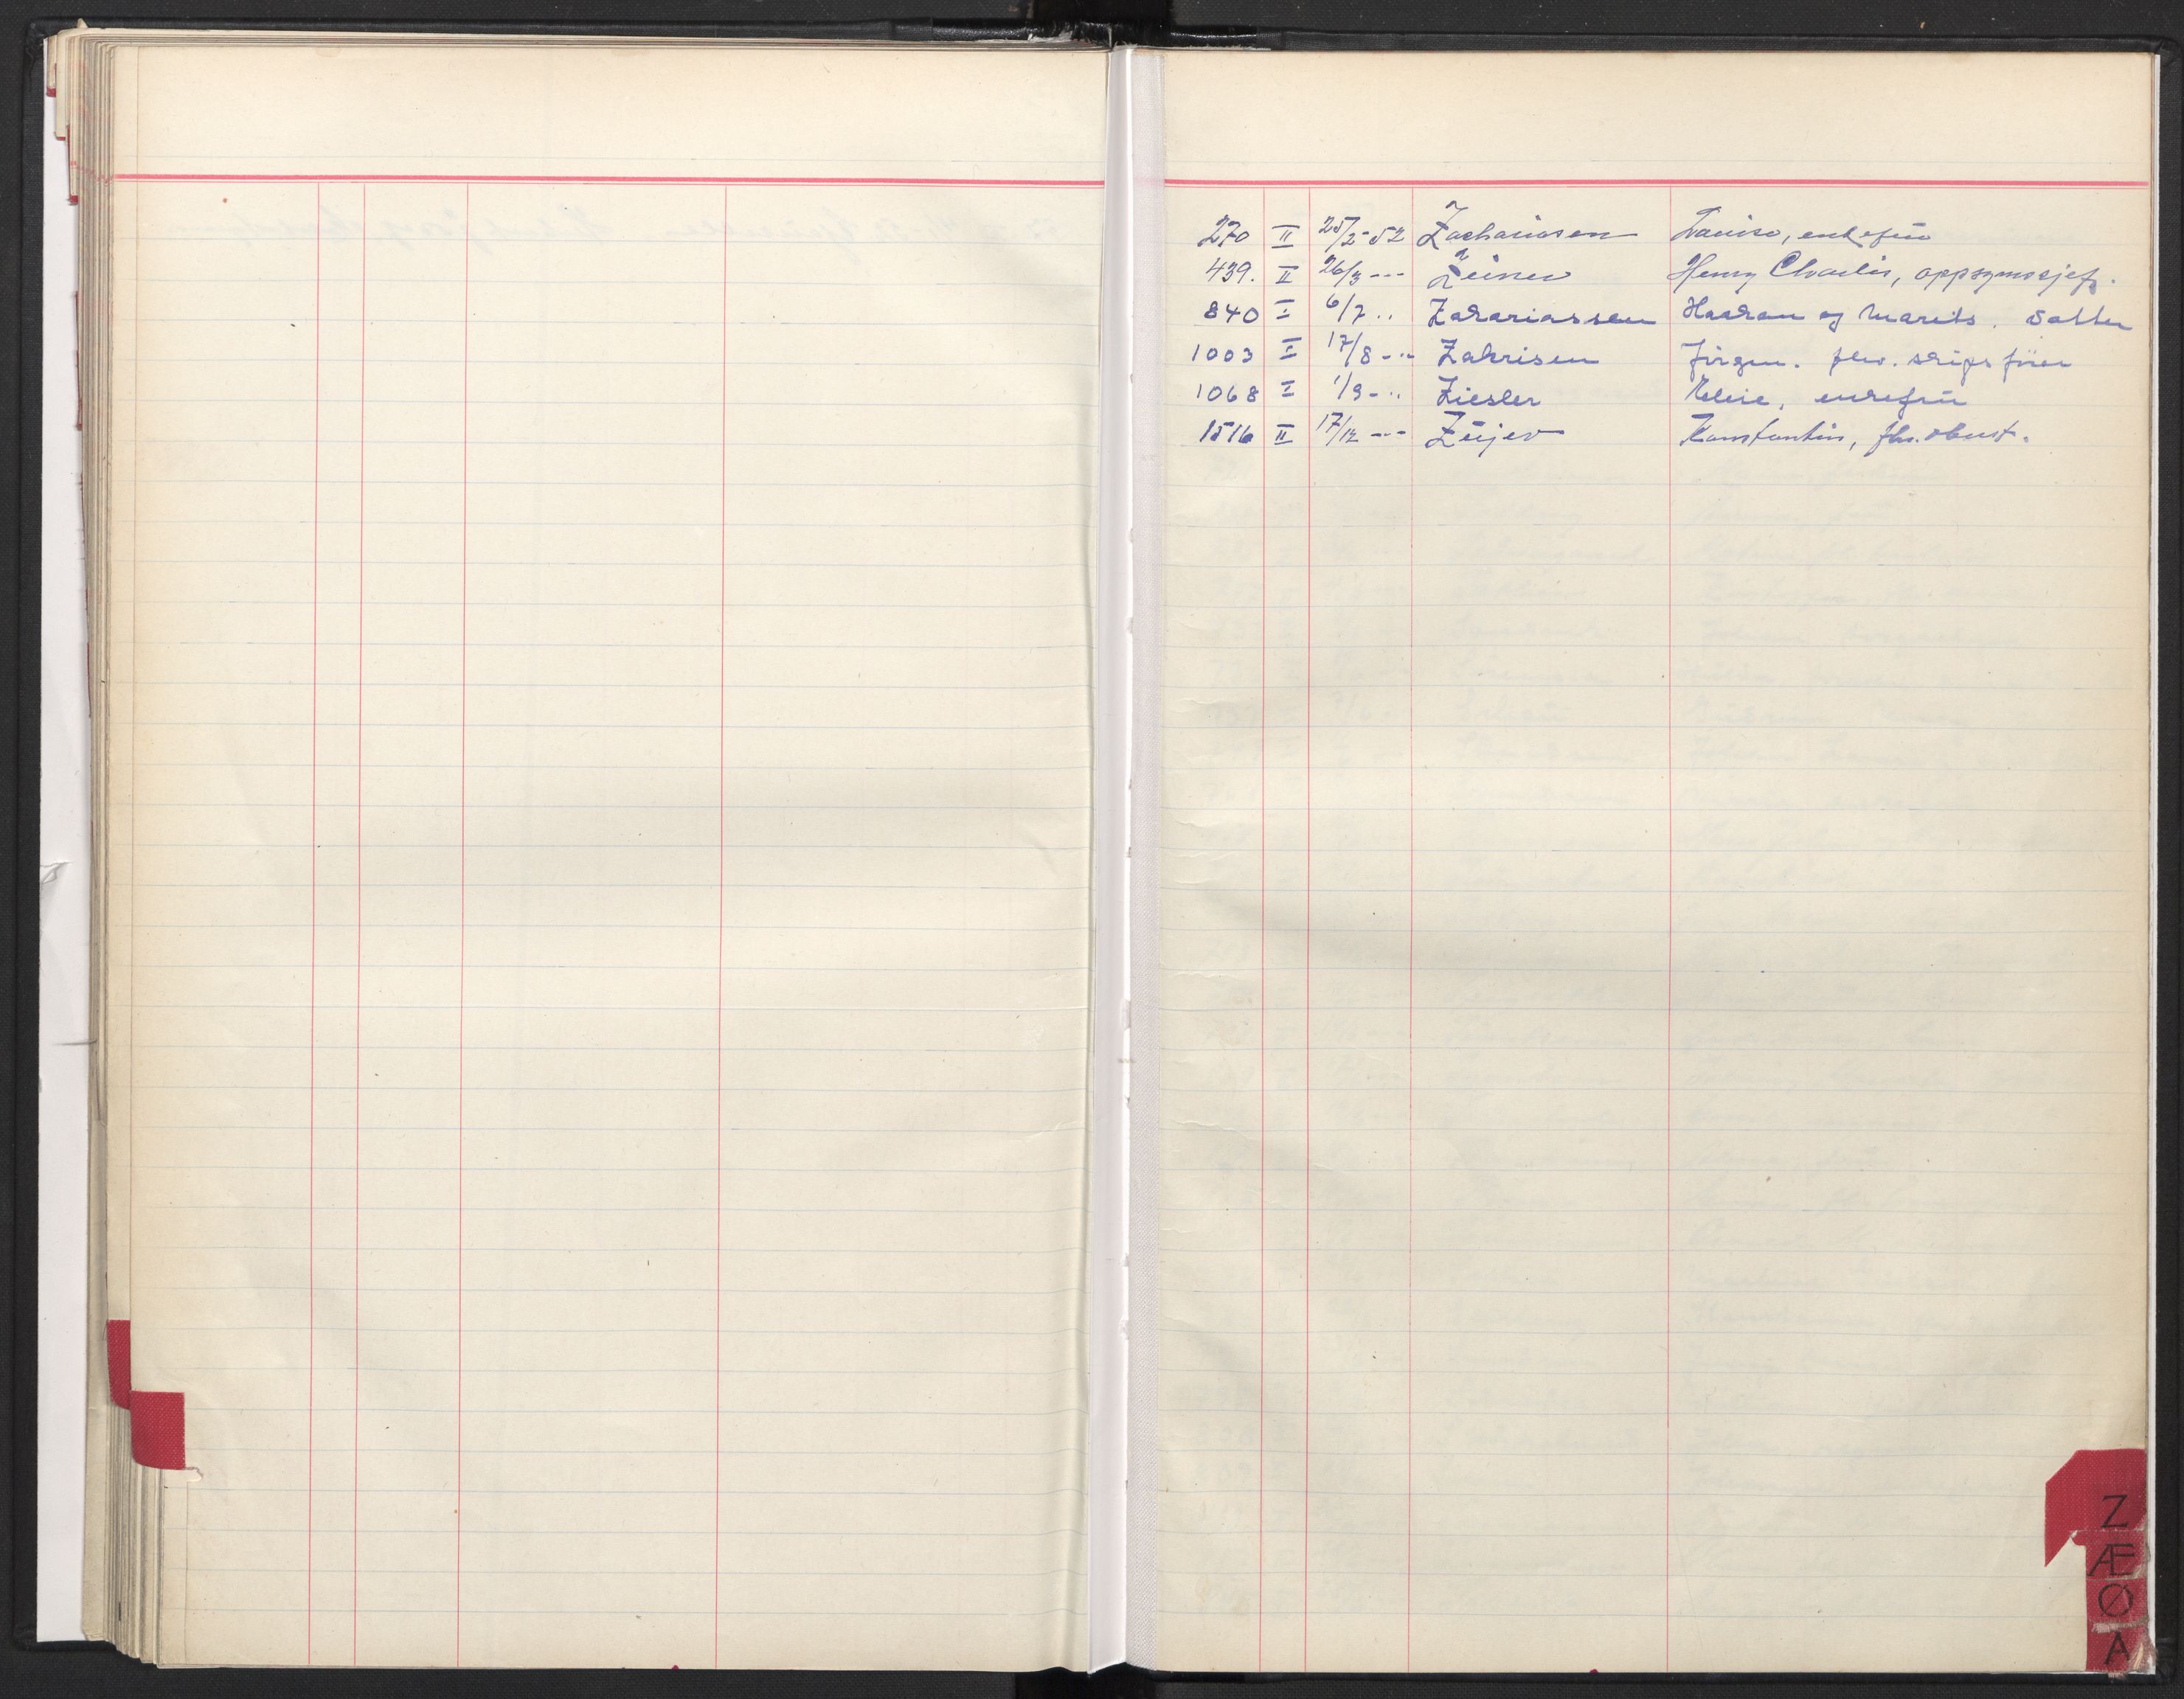 270 II 25/2-52 Zachariasen Louise, enkefru
439. II 26/3 --- Zeiner Henry Charles, oppsynssjef.
840 I 6/7 .. Zakariassen Haakon og Marits. datter
1003 I 17/8 - .. Zakrisen Jörgen. fhv. skipsförer
1068 I 1/9 - .. Ziesler enkefru
1516 II 17/12 --- Zujev Konstantin, fhv. oberst.
Z
Æ
Ø
A